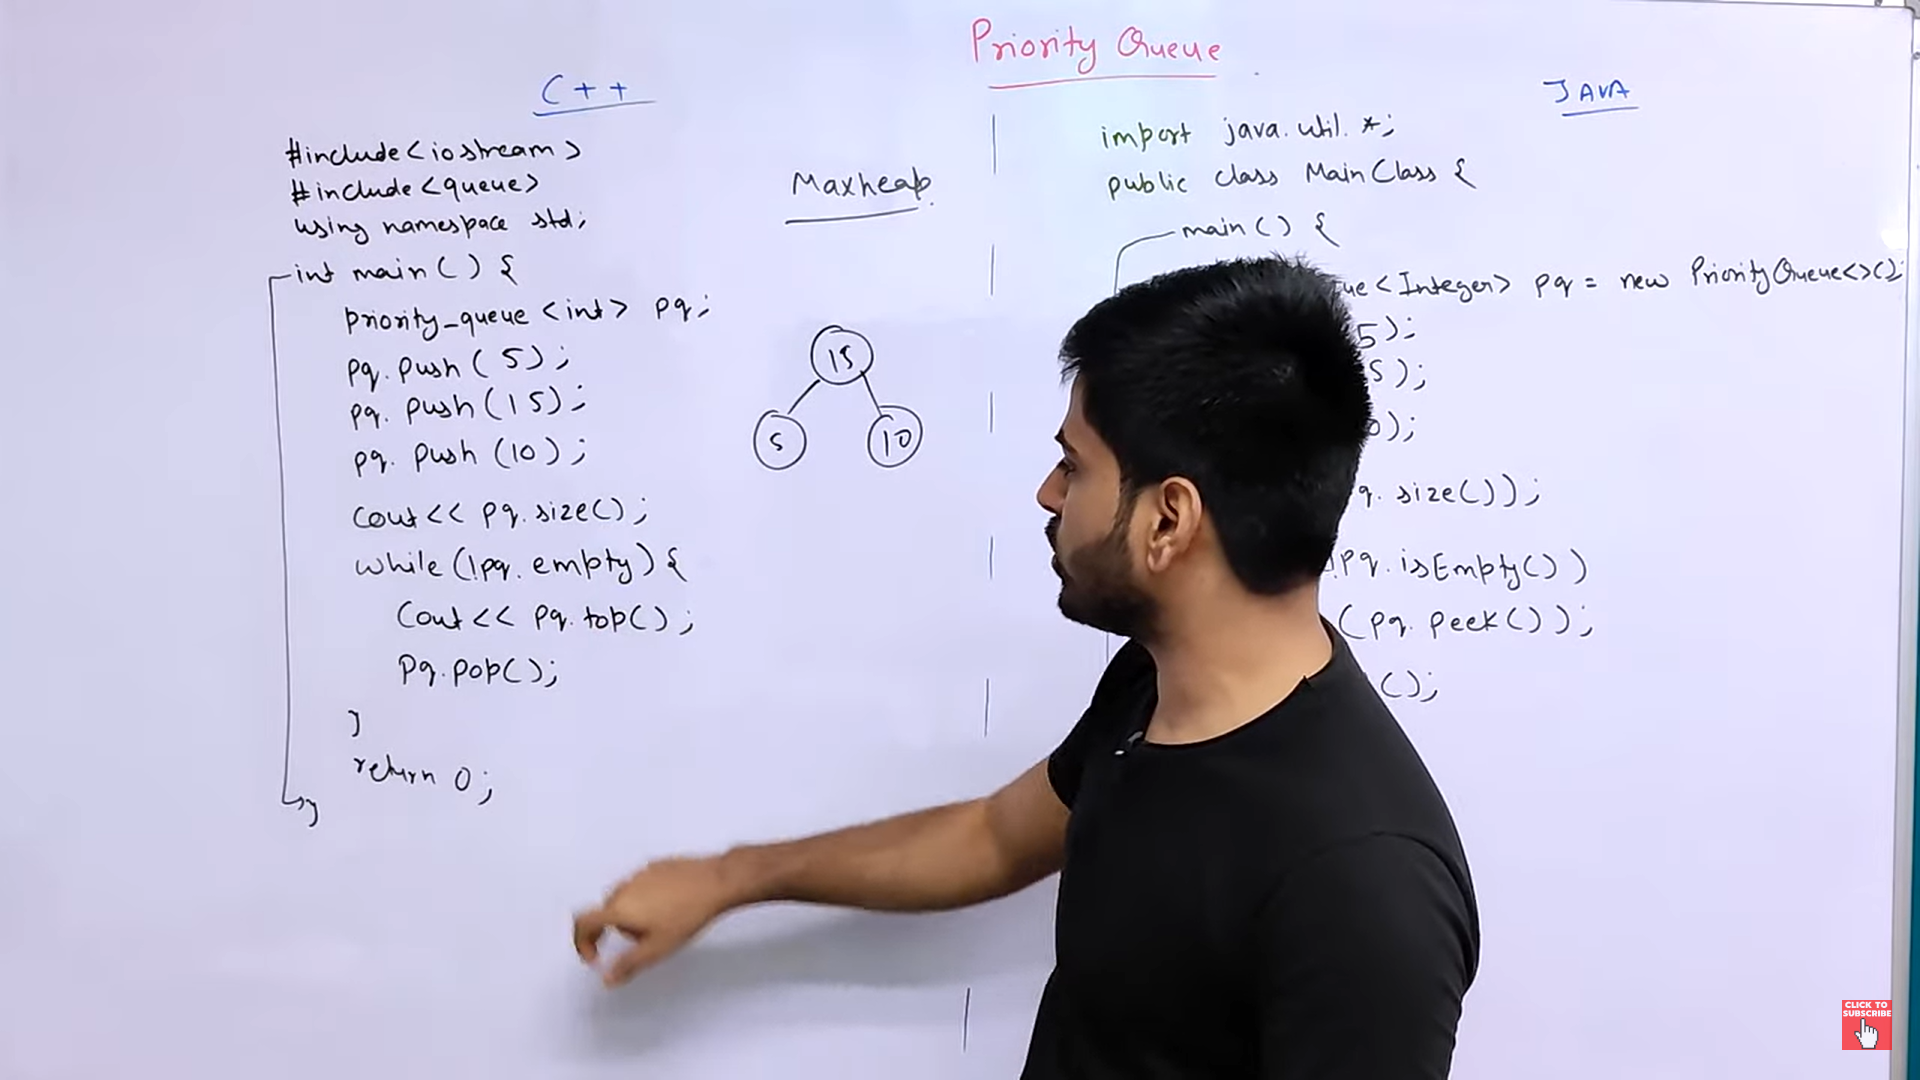 Priority Queue
C++
#include<iostream>
#include<queue>
using namespace std;
int main() {
priority_queue <int> pq;
pq.push(5);
pq.push(15);
pq.push(10);
cout<< pq.size();
while(!pq.empty){
cout<< pq.top();
pq.pop();
}
return 0;
}
Maxheap
15
5
10
JAVA
import java.util.*;
public class MainClass {
main() {
<Integer> pq = new PriorityQueue<>();
5);
5);
);
.size());
pq.isEmpty())
(pq.peek());
();
CLICK TO
SUBSCRIBE